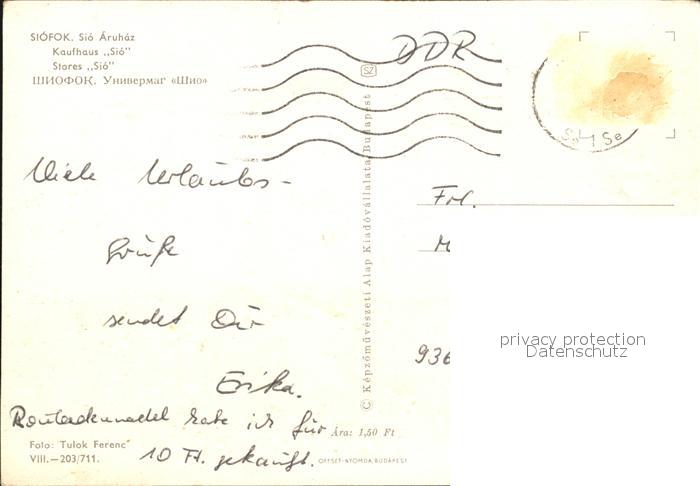 SIÓFOK. Sió Áruház
Kaufhaus „Sió”
Stores „Sió”
ШИОФОК. Универмаг «Шио»
DDR
SZ
© Képzőművészeti Alap Kiadóvállalata, Budapest
Viele Urlaubs-
grüße
sendet Dir
Erika.
habe ich für
10 Ft. gekauft.
Frl.
M
936
privacy protection
Datenschutz
Ára: 1,50 Ft
Foto: Tulok Ferenc
VIII.—203/711.
OFFSET-NYOMDA, BUDAPEST